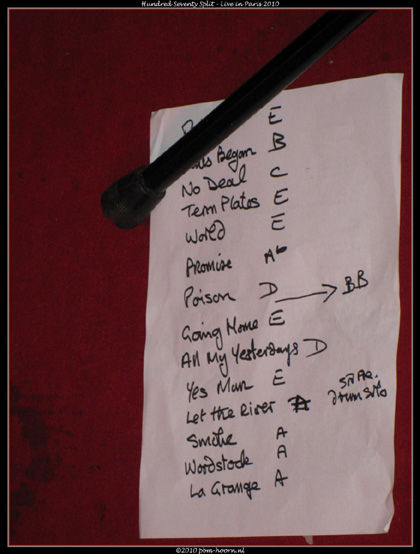 Hundred Seventy Split - Live in Paris 2010
E
Began B
No Deal C
Tem Plates E
World E
Promise Ab
Poison D → BB
Going Home E
All My Yesterdays D
Yes Man E
Let the River A
drum solo
Smoke A
Woodstock A
La Grange A
©2010 pbm-hoorn.nl